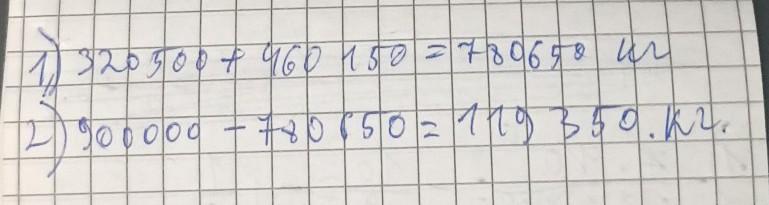 1) 320500 + 460 150 = 780650 кг
2) 900000 - 780650 = 119 350. кг.